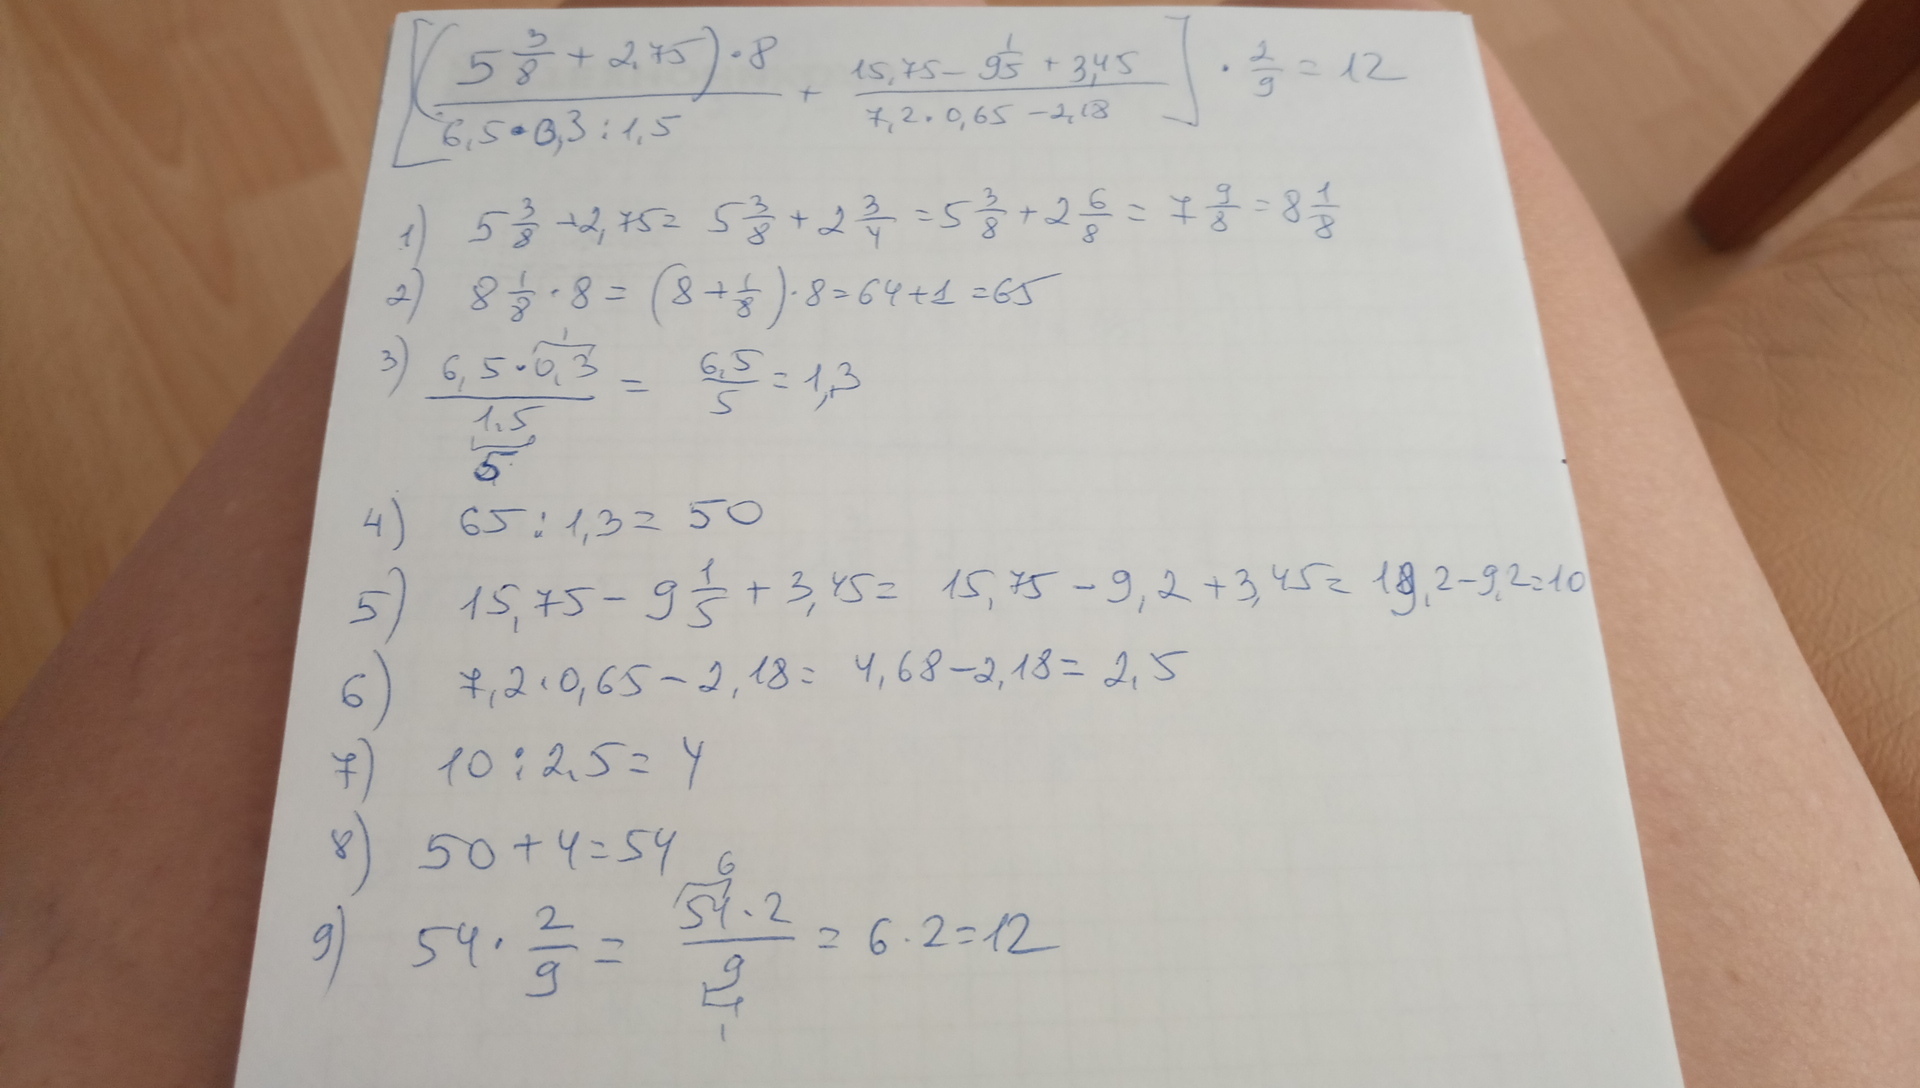 [((5 3/8 + 2,75) · 8)/(6,5 · 0,3 : 1,5) + (15,75 - 9 1/5 + 3,45)/(7,2 · 0,65 - 2,18)] · 2/9 = 12
1) 5 3/8 + 2,75 = 5 3/8 + 2 3/4 = 5 3/8 + 2 6/8 = 7 9/8 = 8 1/8
2) 8 1/8 · 8 = (8 + 1/8) · 8 = 64 + 1 = 65
3) 6,5 · 0,3 1 / 1,5 5 = 6,5/5 = 1,3
4) 65 : 1,3 = 50
5) 15,75 - 9 1/5 + 3,45 = 15,75 - 9,2 + 3,45 = 19,2 - 9,2 = 10
6) 7,2 · 0,65 - 2,18 = 4,68 - 2,18 = 2,5
7) 10 : 2,5 = 4
8) 50 + 4 = 54
9) 54 · 2/9 = 54 6 · 2 / 9 1 = 6 · 2 = 12